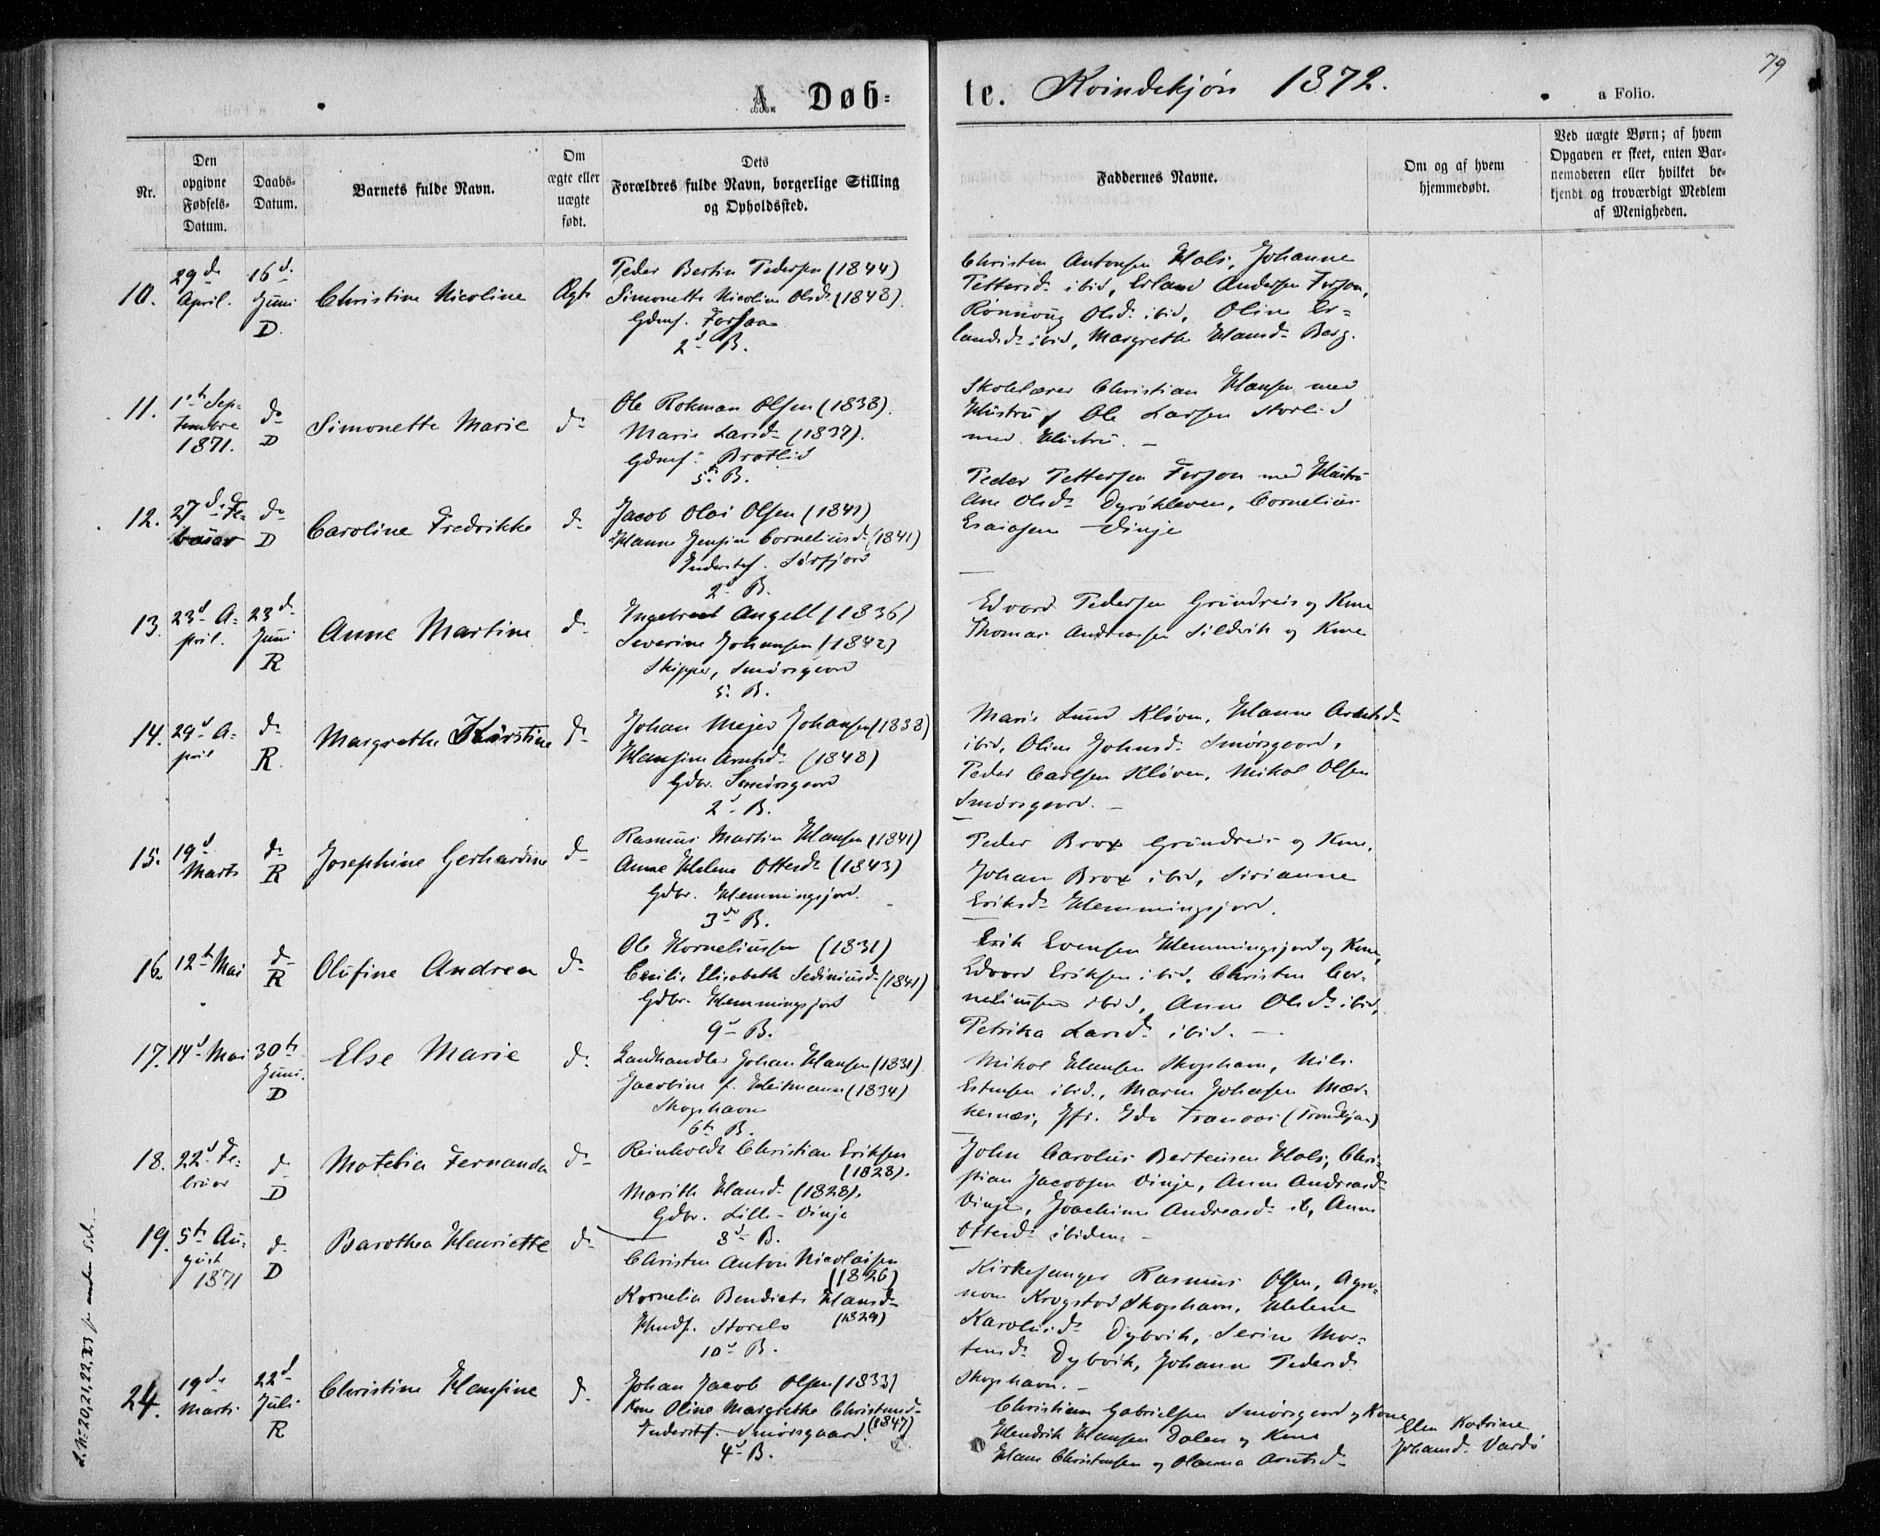 79
A. Døb-
te. Kvindekjøn 1872.
a Folio.
Nr.
Den
opgivne
Fødsels-
Datum.
Daabs-
Datum.
Barnets fulde Navn.
Om
ægte eller
uægte
født.
Dets
Forældres fulde Navn, borgerlige Stilling
og Opholdssted.
Faddernes Navne.
Om og af hvem
hjemmedøbt.
Ved uægte Børn; af hvem
Opgaven er skeet, enten Bar-
nemoderen eller hvilket be-
kjendt og troværdigt Medlem
af Menigheden.
10.
29de
April.
16d.
Juni
D.
Christine Nicoline
Ægt.
Peder Bertin Pedersen (1844)
Simonette Nicoline Olsd. (1848).
Gdmf. Forsaa
2d B.
Christen Antonsen Hals, Johanne
Pettersd. ibid, Erland Andersen Forsaa,
Rønnoug Olsd. ibid, Oline Er-
landsd. ibid, Margrethe Hansd. Berg.
11.
1ste Sep-
tembre
1871.
do
D
Simonette Marie
do
Ole Rokman Olsen (1838).
Marie Larsd. (1837).
Gdmf. Bratlid
5. B.
Skolelærer Christian Hansen med
Hustru & Ole Larsen Storlid
med Hustru. —
12.
27d. Fe-
bruar
do
D
Caroline Fredrikke
do
Jacob Olai Olsen (1841)
Hanne Jensine Corneliusd. (1841)
Inderstf. Sørfjord
2d B.
Peder Pettersen Forsaa med Hustru
Ane Olsd. Dyrøkleven, Cornelius
Esaiasen Vinje
13.
23d A-
pril.
23d.
Juni
R
Anne Martine
do
Ingebrect Angell (1836)
Severine Johansen (1842)
Skipper, Smørsgaard
5. B.
Edvard Pedersen Grundreis og Kone
Thomas Andreassen Sildvik og Kone
14.
29d A-
pril
do
R.
Margrethe Kirstine
do
Johan Mejer Johansen (1838)
Hansine Arntsd. (1848)
Gdbr. Smørsgaard
2d B.
Marie Lund Kløven, Hanne Arntsd.
ibid, Oline Johnsd. Smørsgaard,
Peder Carlsen Kløven, Mikal Olsen
Smørsgaard. —
15.
19d
Marts
do
R
Josephine Gerhardine
do
Rasmus Martin Hansen (1841)
Anne Helene Ottersd. (1843)
Gdbr. Hemmingsjord.
3die B.
Peder Brox Grundreis og Kone,
Johan Brox ibid, Sirianne
Eriksd. Hemmingsjord.
16.
12te Mai
do
R
Olufine Andrea
do
Ole Korneliussen (1831)
Cecilie Elisabeth Sediniusd. (1841)
Gdbr. Hemmingsjord
9d B.
Erik Evensen Hemmingsjord og Kone,
Edvard Eriksen ibid, Christen Cor-
neliussen ibid, Anne Olsd. ibid,
Petrika Larsd. ibid. —
17.
14d Mai
30te
Juni.
D
Else Marie
do
Landhandler Johan Hansen (1831)
Jacobine f. Heitmann (1834)
Skogshavn
6te B.
Mikal Hansen Skogshavn, Nils
Estensen ibid., Maren Johansen Mær-
kenæs, Jfr. Ida Tranaas (Trondhjem)
18.
22d Fe-
bruar
do
D
Motebia Fernanda
do
Reinholdt Christian Eriksen
(1828).
Marith Hansd. (1828).
Gdbr. Lille-Vinje
8d B.
John Carolius Berteusen Hals, Chri-
stian Jacobsen Vinje, Anne Andreasd.
Vinje, Joachime Andreasd. ib, Anne
Ottersd. ibidem —
19.
5te Au-
gust
1871
do
D
Barothea Henriette
do
Christen Anton Nicolaisen
(1826)
Kornelia Bendicte Hansd.
(1829)
Hmdf. Storelo
10d B.
Kirkesanger Rasmus Olsen, Agro-
nom Krogstad Skogshavn, Helene
Karolusd. Dybvik, Serine Mor-
tensd. Dybvik, Johanne Pedersd.
Skogshavn. —
24.
19de
Marts
22d
Juli
R
Christine Hansine
do
Johan Jacob Olsen (1833)
Kone Oline Margrethe Christensd.
(1847)
Inderstf. Smørsgaard.
4d B.
Christian Gabrielsen Smørsgaard og Kone
Hendrik Hansen Dalen og Kone
Hans Christensen og Hanna Arntsd.
Elen Katrine
Johansd. Vardø
s. No 20, 21, 22, 23 paa anden Side.